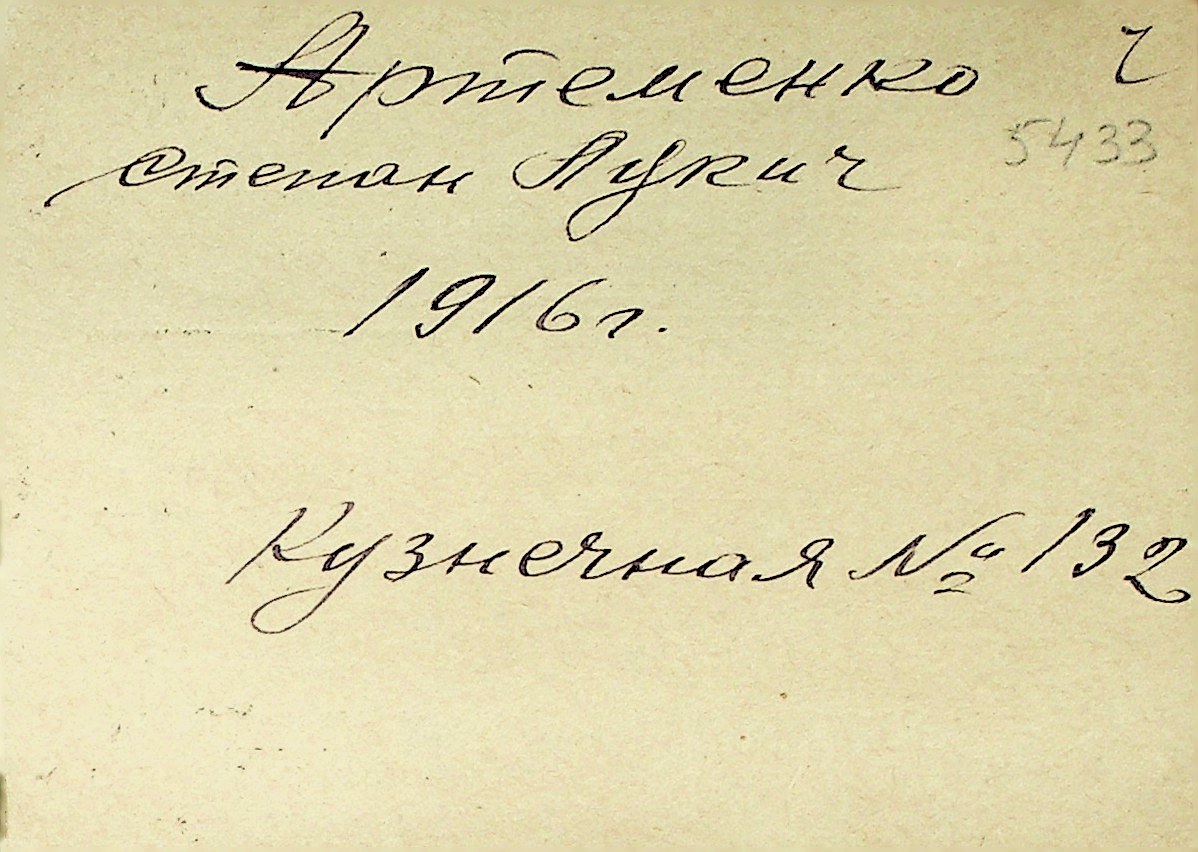 Артеменко ч
5433
Степан Лукич
1916г.
Кузнечная № 132